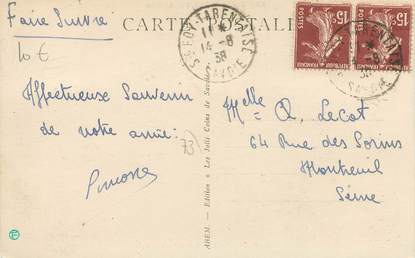 Faire Suivre
CARTE POSTALE
10€
Affectueux Souvenir
de votre amie:
Simone
73
Melle R. Lecot
64 Rue des Sorins
Montreuil
Seine
STE FOY-TARENTAISE
14-8
38
SAVOIE
15c
POSTES
REPUBLIQUE FRANÇAISE
15c
Edition « Les Jolis Coins de Savoie »